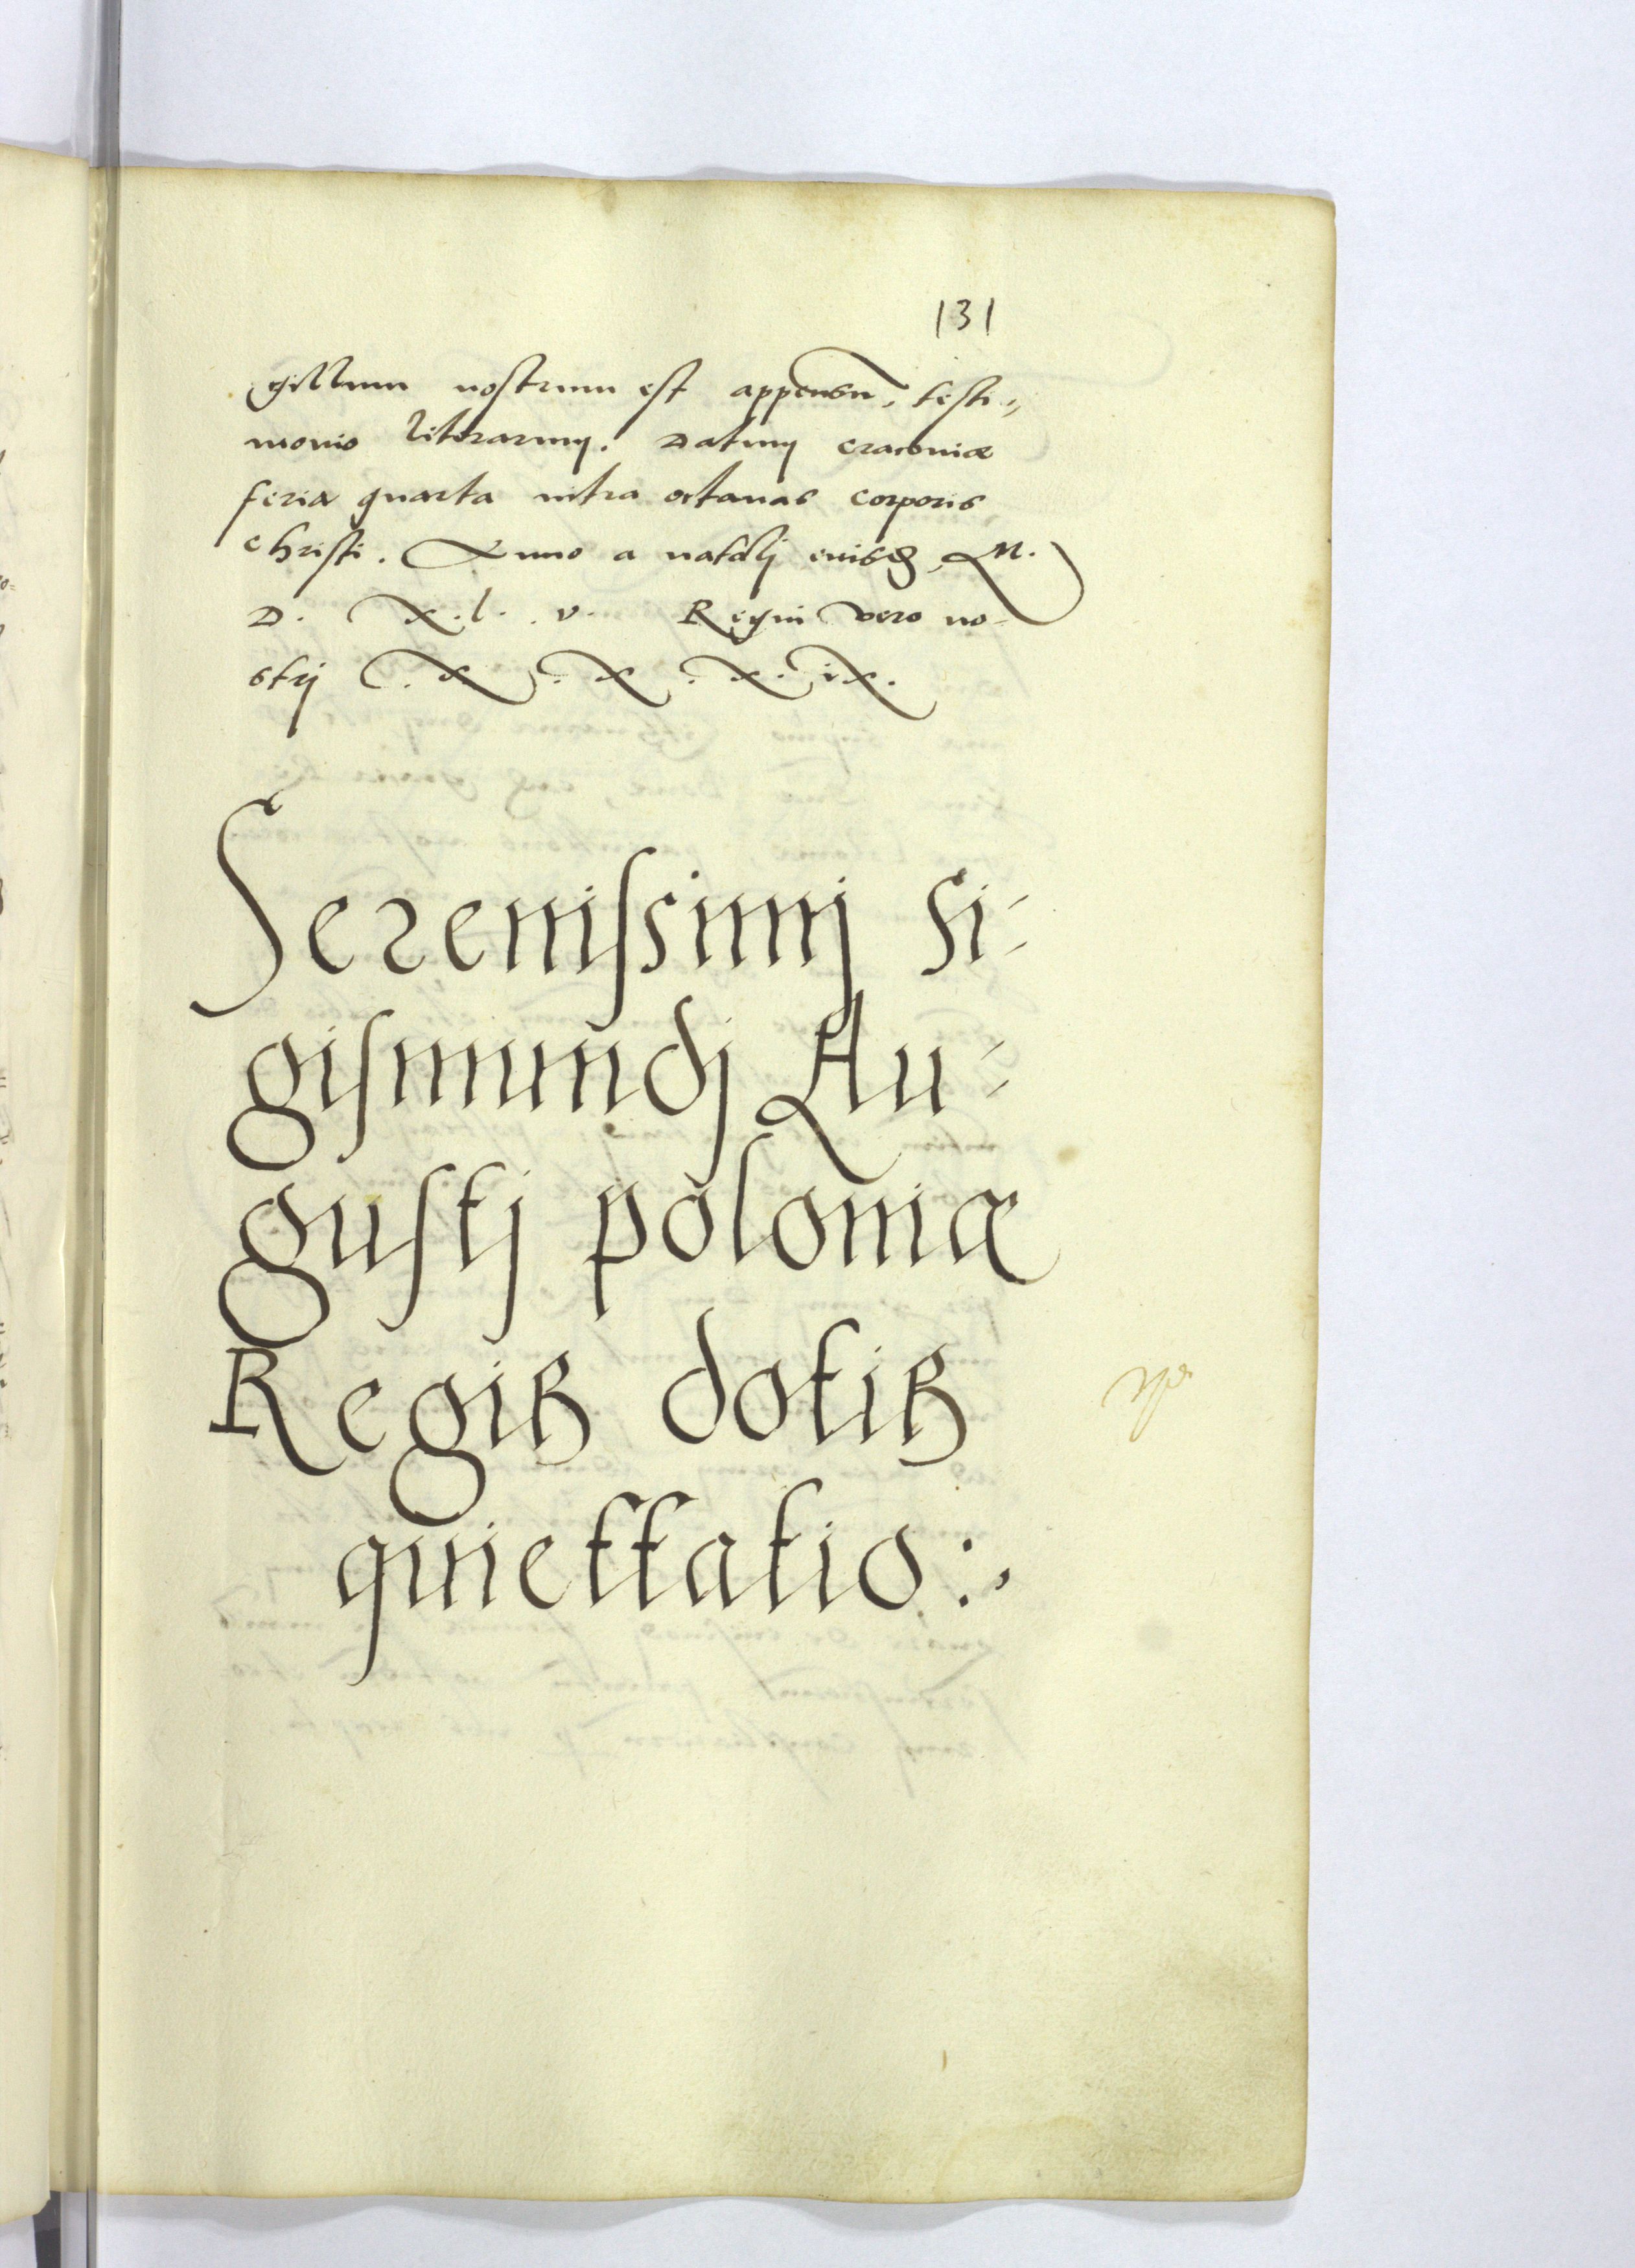 131
gillum nostrum est appensũ, testi„
monio literarum. Datum Cracoviæ
feria quarta intra octavas corporis
Christi. Anno a natalj eiusdẽ, M.
D. X.l.v. Regni vero no-
strj .X.X.X.ix.
Serenissimj Si-
gismundj Au-
gustj poloniæ
Regis dotis
quiettatio:,